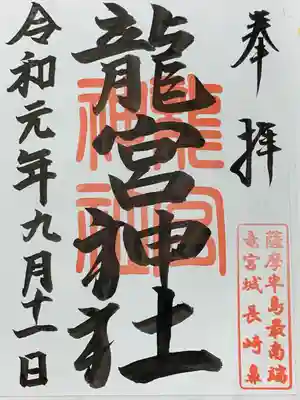 奉拝
薩摩半島最南端
竜宮城長崎鼻
龍宮神社
龍宮
神社
令和元年九月十一日